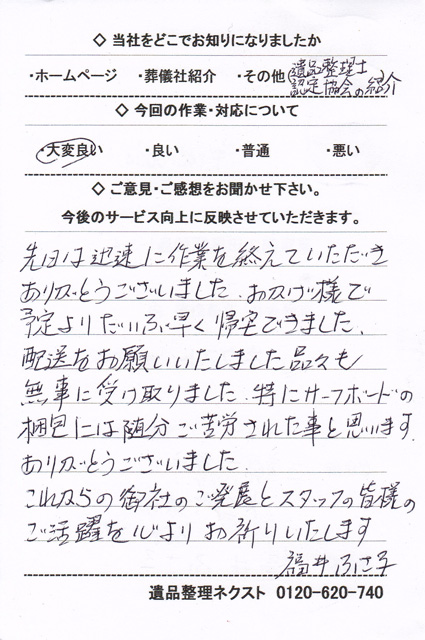 ◇ 当社をどこでお知りになりましたか
・ホームページ ・葬儀社紹介 ・その他(遺品整理士認定協会の紹介)
◇ 今回の作業・対応について
・大変良い ・良い ・普通 ・悪い
◇ ご意見・ご感想をお聞かせ下さい。
今後のサービス向上に反映させていただきます。
先日は迅速に作業を終えていただき
ありがとうございました。おかげ様で
予定よりだいぶ早く帰宅できました。
配送をお願いいたしました品々も
無事に受け取りました。特にサーフボードの
梱包には随分ご苦労された事と思います。
ありがとうございました。
これからの御社のご発展とスタッフの皆様の
ご活躍を心よりお祈りいたします
福井ふさ子
遺品整理ネクスト 0120-620-740